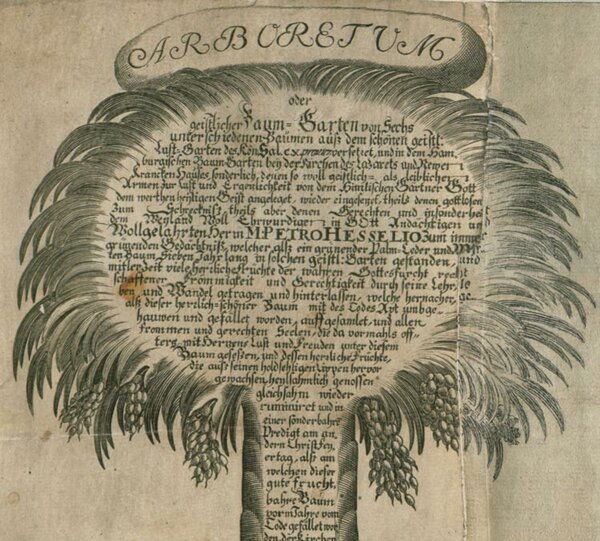 ARBORETUM
oder
geistlicher Baum-Garten von Sechs
unterschiedenen Bäumen auß dem schönen geistl:
Lust-Garten des Kön Sal. ex versetzet, und in dem Ham,
burgischen Baum Garten beÿ der Kirchen des Lazarets und Newen
Krancken Hauses sonderlich, denen so woll geistlich- als leiblicher
Armen zur lust und Ergenlichkeit von dem Himlischen Gärtner Gott
dem werthen heÿligen Geist angeleget, wieder eingesezet, theils denen gottlosen
zum Schrecknis, theils aber denen Gerechten und insonderheit
dem Weyland Woll Ehrwürdigen in GOtt Andächtigen un
Wollgelahrten Herrn M. PETRO HESSELIO zum imme
grünenden Gedächtniß, welcher alß ein grünender Palm-Ceder und
ten Baum Sieben Jahr lang in solchen geistl: Garten gestanden, und
mitler Zeit viele herliche früchte der wahren Gottesfurcht, recht
schaffener Frommigkeit und Gerechtigkeit durch seine Lehr, le
ben, und Wandel getragen und hinterlassen, welche hernacher, ge
alß dieser herzlich-schöner Baum mit des Todes Axt umbge-
hauwen und gefället worden, auffgesamlet, und allen
frommen und gerechten Seelen, die da vormahls off-
ters, mit Hertzens Lust und Freuden unter diesem
Baum geseßen, und dessen herzliche Früchte,
die auß seinen holdsehligen Lippen hervor
gewachsen, genossen
gleichsahm wieder
ruminiret und in
einer sonderbahre
Predigt am an,
dern Christ Feÿ,
ertag, alß am
welchen dieser
gute frucht,
bahre Baum
vorm Jahre vom
Tode gefället wor
den der Kirchen